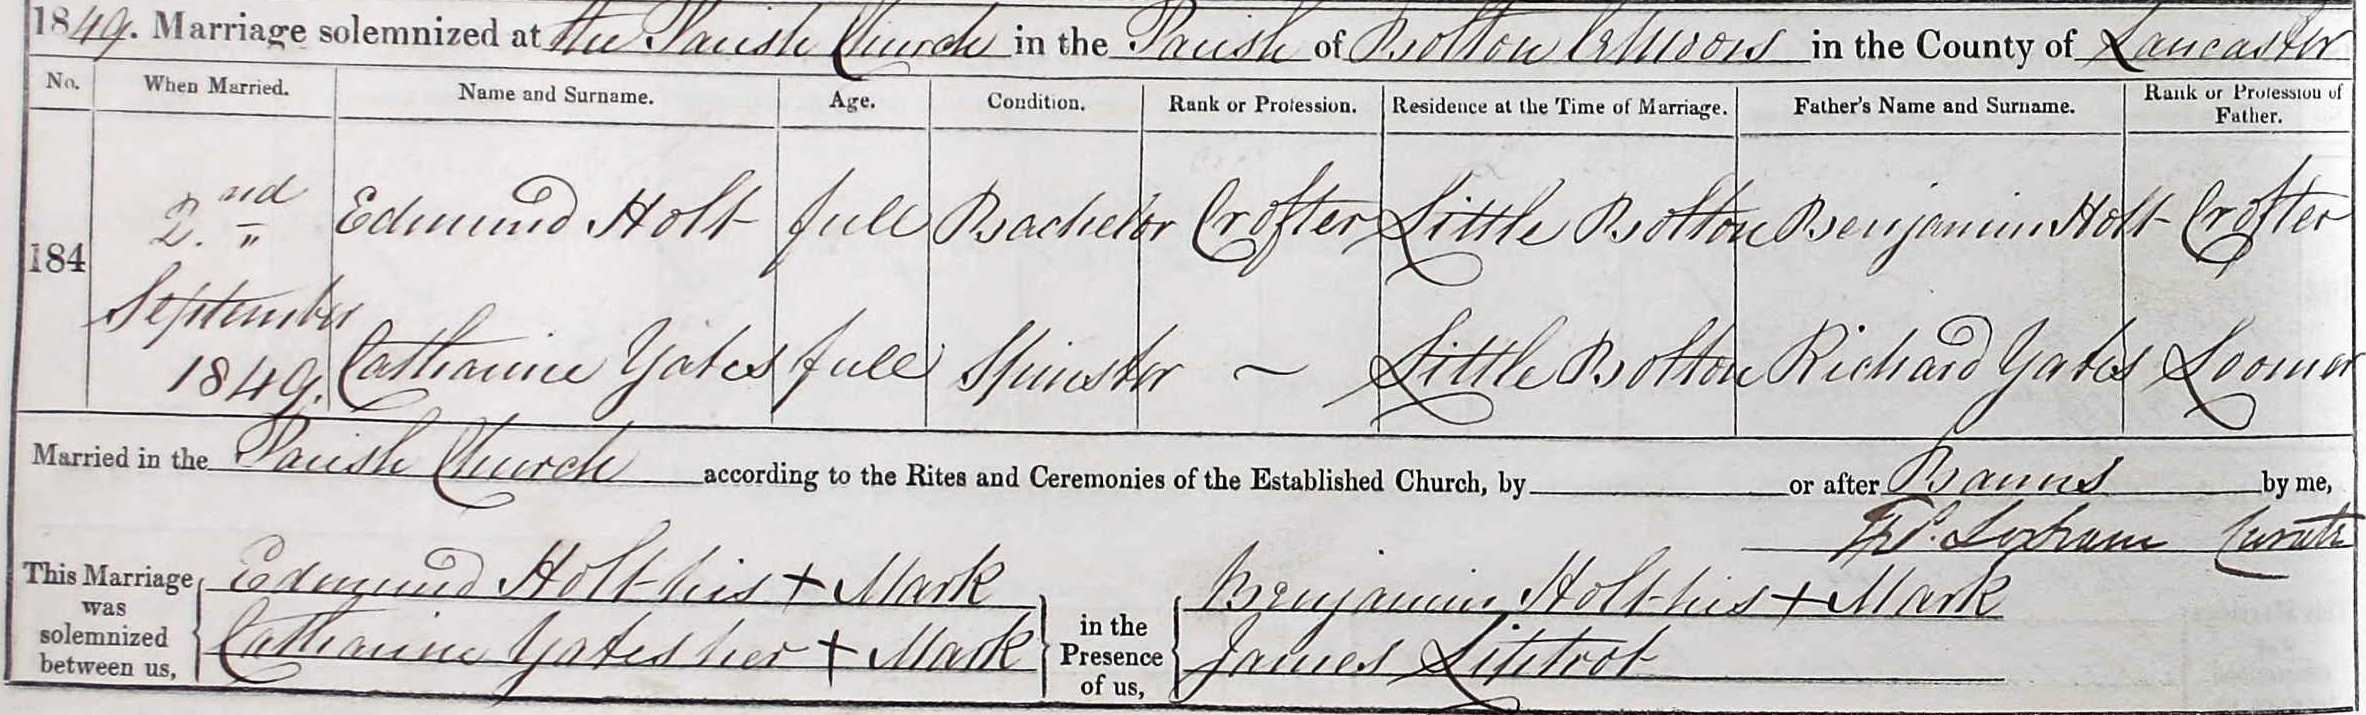 1849. Marriage solemnized at the Parish Church in the Parish of Bolton le Moors in the County of Lancaster
No. When Married. Name and Surname. Age. Condition. Rank or Profession. Residence at the Time of Marriage. Father's Name and Surname. Rank or Profession of Father.
184 2nd September 1849. Edmund Holt full Bachelor Crofter Little Bolton Benjamin Holt Crofter
Catharine Yates full Spinster ~ Little Bolton Richard Yates Loomer
Married in the Parish Church according to the Rites and Ceremonies of the Established Church, by or after Banns by me,
Curate
This Marriage was solemnized between us, Edmund Holt his + Mark
Catharine Yates her + Mark
in the Presence of us, Benjamin Holt his + Mark
James